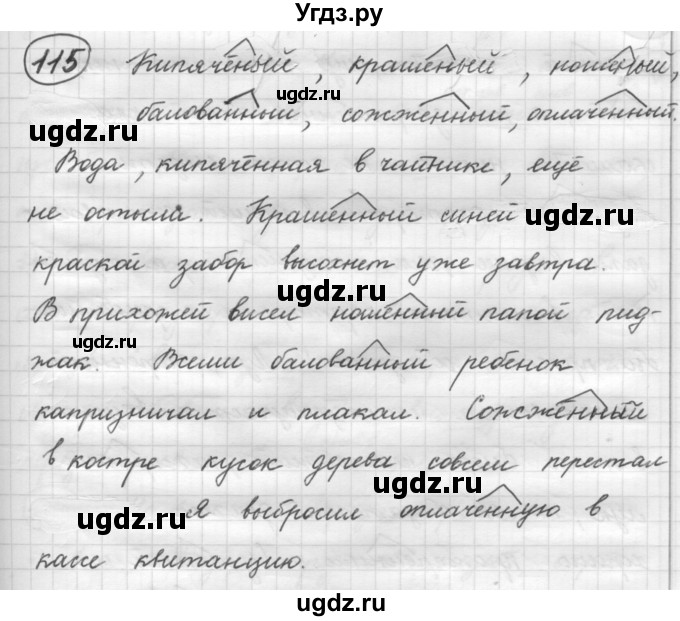 Угдз.ру
115 Кипячёный, крашеный, ношеный,
ugdz.ru
балованный, сожжённый, оплаченный.
ugdz.ru
Вода, кипячённая в чайнике, ещё
не остыла. Крашенный синей
ugdz.ru
краской забор высохнет уже завтра.
ugdz.ru
В прихожей висел ношенный папой пид-
ugdz.ru
жак. Всеми балованный ребенок
капризничал и плакал. Сожжённый
в костре кусок дерева совсем перестал
ugdz.ru
ugdz.ru Я выбросил оплаченную в
кассе квитанцию.
ugdz.ru